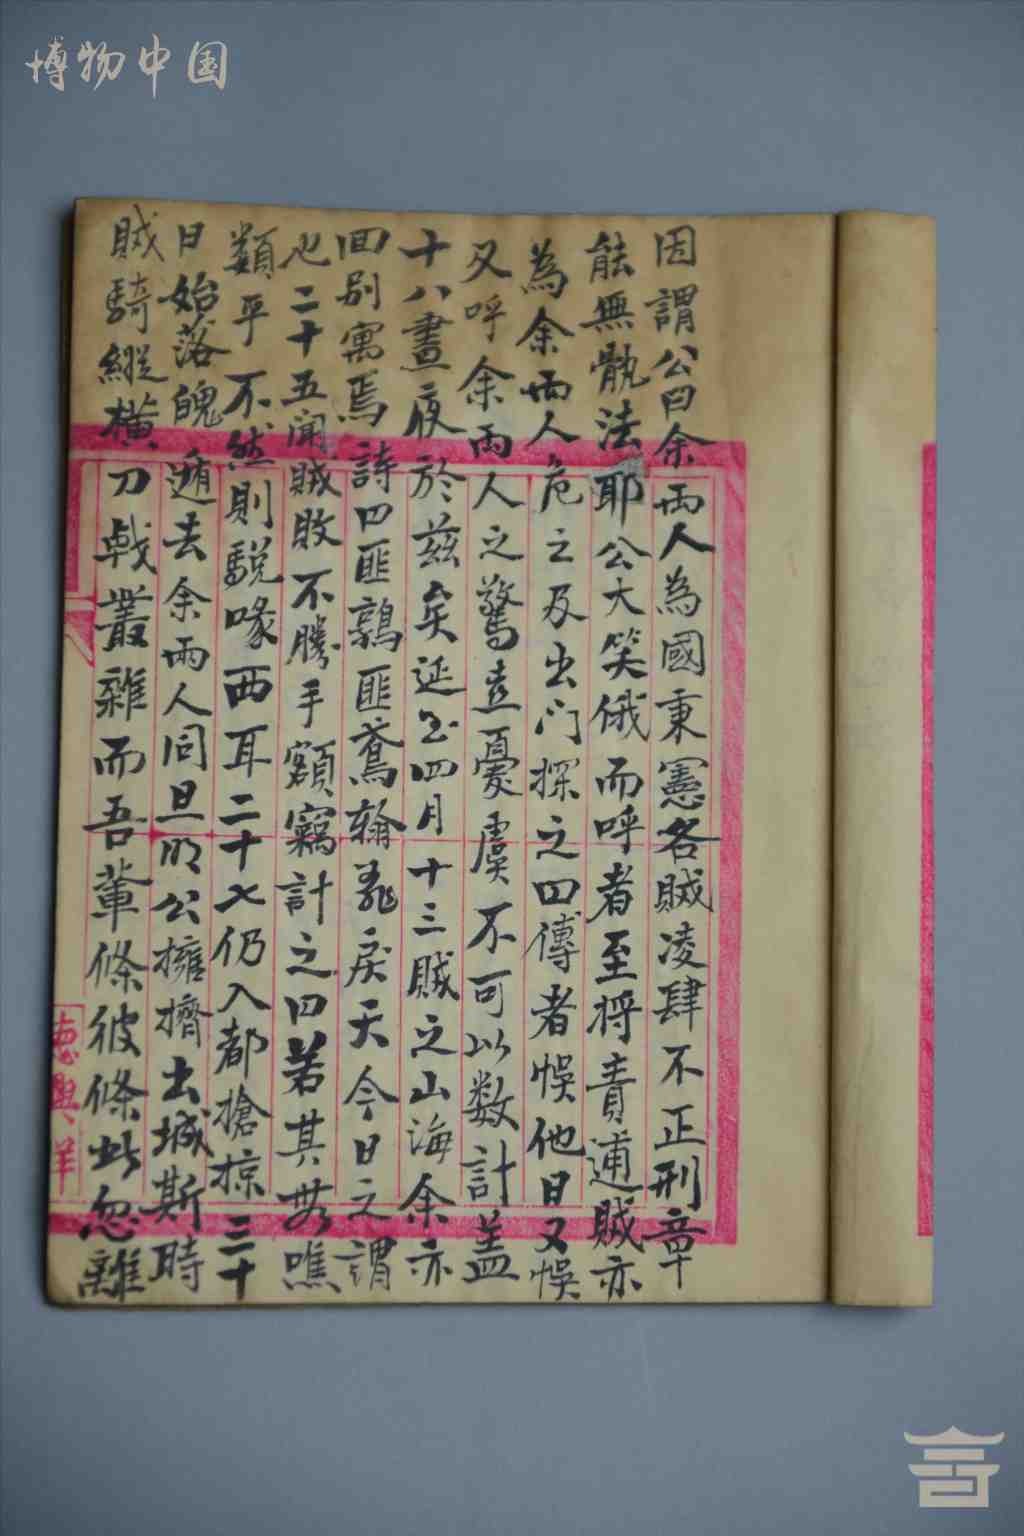 博物中国
因謂公曰余兩人為國秉憲各賊凌肆不正刑章
能無骫法耶公大笑俄而呼者至将責逋賊亦
為余兩人危之及出门探之曰傳者悞他日又悞
又呼余兩人之驚喜憂虞不可以数計盖
十八晝夜於兹矣延至四月十三賊之山海余亦
回别寓焉詩曰匪鶉匪鳶翰飛戾天今日之謂
也二十五聞賊敗不勝手額竊計之曰若其無噍
類乎不然則駾喙西耳二十七仍入都搶掠三十
日始落魄遁去余兩人同旦明公擁擠出城斯時
賊騎縱横刀戟叢雜而吾輩倏彼倏此忽離
德興洋